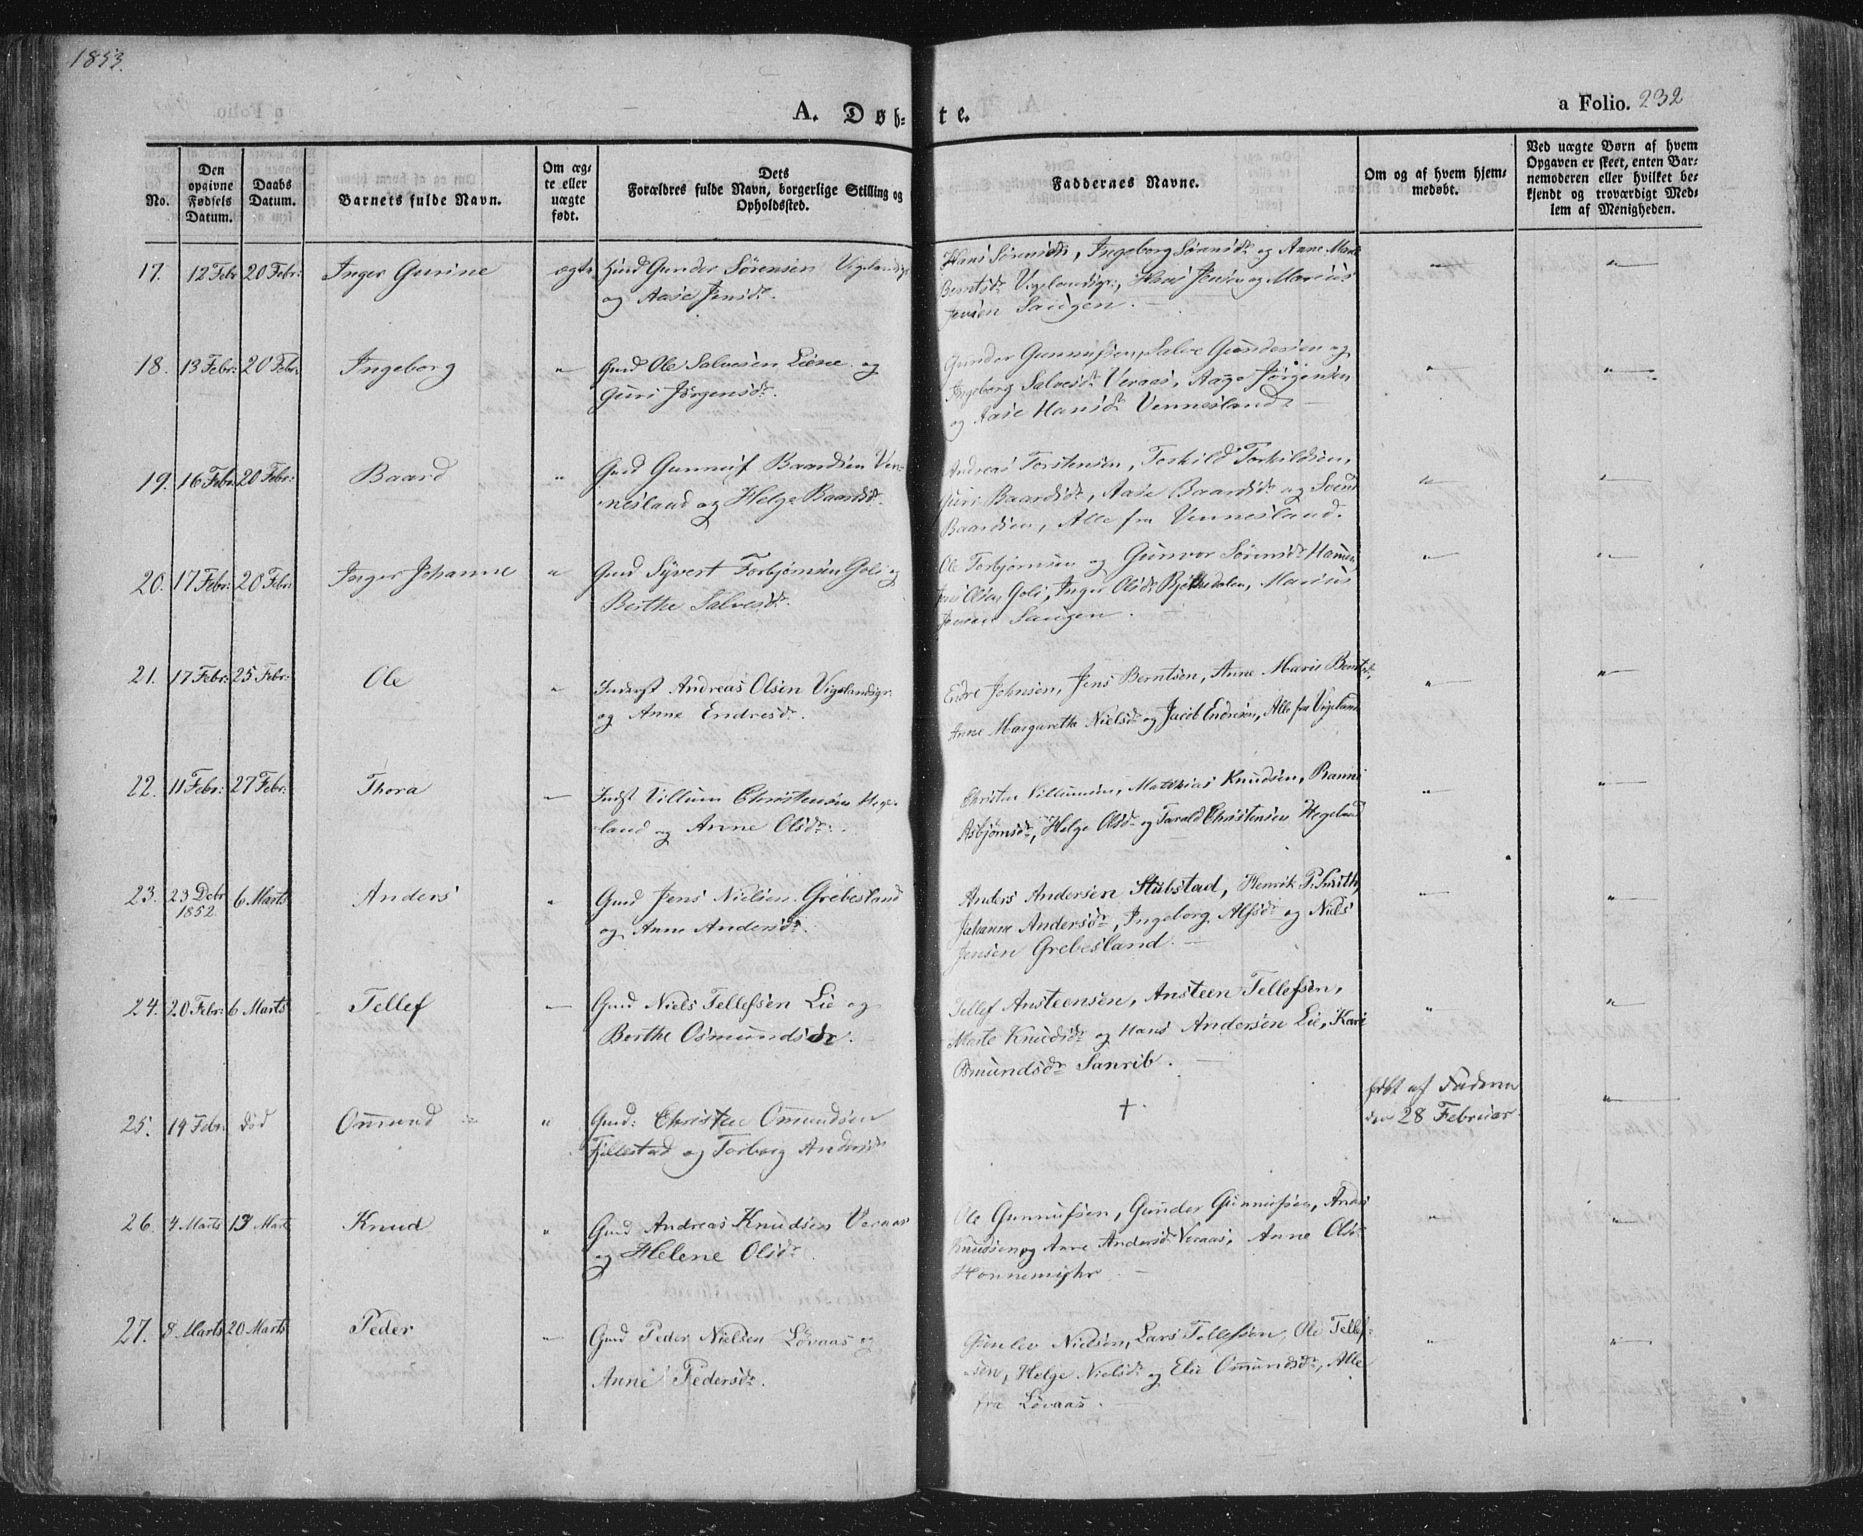 1853.
A. Døb-te.
a Folio. 232
No.
Den opgivne Fødsels Datum.
Daabs Datum.
Barnets fulde Navn.
Om ægte eller uægte født.
Dets Forældres fulde Navn, borgerlige Stilling og Opholdssted.
Faddernes Navne.
Om og af hvem hjemmedøbt.
Ved uægte Børn af hvem Opgaven er skeet, enten Barnemoderen eller hvilket bekjendt og troværdigt Medlem af Menigheden.
17. 12 Febr 20 Febr: Inger Gurine ægte Gunder Sörensen Vigelandsgr
og Aase Jensdr.
Hans Sörensen, Ingeborg Sörensdr og Anne Marie
Berntsdr Vigelandsgr, Hans Jensen og Marius
Jensen Saugen. —
18. 13 Febr: 20 Febr: Ingeborg " Gmd Ole Salvesen Liene og
Guri Jörgensdr.
Gunder Gunnufsen, Salve Gundersen og
Ingeborg Salvesdr Veraas, Aage Jörgensen
og Aase Hansdr Vennesland —
19. 16 Febr: 20 Febr: Baard " Gmd Gunnuf Baardsen Ven-
nesland og Helge Baardsdr.
Andreas Torstensen, Torkild Torkildsen,
Guri Baardsdr, Aase Baardsdr og Svend
Baardsen, Alle fra Vennesland.
20. 17 Febr: 20 Febr: Inger Johanne " Gmd Syvert Torbjörnsen Goli og
Berthe Salvesdr.
Ole Torbjörnsen og Gunvor Sörensdr
Jens Olsen Goli, Inger Olsdr, Marius
Jensen Saugen.
21. 17 Febr: 25 Febr: Ole " Inderst Andreas Olsen Vigelandsgr
og Anne Endresdr.
Endre Johnsen, Jens Berntsen, Anne Marie Berntsdr,
Anne Margarethe Nielsdr og Jacob Endresen, Alle fra Vigeland
22. 11 Febr: 27 Febr: Thora — Indst Villum Christensen Hege-
land og Anne Olsdr:
Christen Villumsen, Matthias Knudsen, Ranni
Asbjörnsdr, Helge Olsdr og Tarald Christensen Hegeland
23. 23 Debr 6 Marts Anders " Gmd Jens Nielsen Grebesland
1852 og Anne Andersdr.
Anders Andersen Stubstad, Henrik P. Smith,
Johanne Andersdr, Ingeborg Alfsdr og Niels
Jensen Grebesland. —
24. 20 Febr: 6 Marts Tellef — Gmd Niels Tellefsen Lie og
Berthe Osmundsdr.
Tellef Ansteensen, Ansteen Tellefsen,
Marte Knudsdr og Hans Andersen Lie, Kari
Osmundsdr Sanrib.
25. 19 Febr. död Omund " Gmd: Christen Omundsen
Fjellestad og Torborg Andersdr
†.
döbt af Faderen
den 28 Februar
26. 4 Marts 13 Marts Knud " Gmd Andreas Knudsen Veraas
og Helene Olsdr.
Ole Gunnufsen, Gunder Gunnufsen, Anders
Knudsen og Anne Andersdr Veraas, Anne Olsdr
27. 8 Marts 20 Marts Peder " Gmd Peder Nielsen Lövaas og
Anne Pedersdr.
Gunlev Nielsen, Lars Tellefsen, Ole Tellef-
sen, Helge Nielsdr og Elie Omundsdr, Alle
fra Lövaas. —